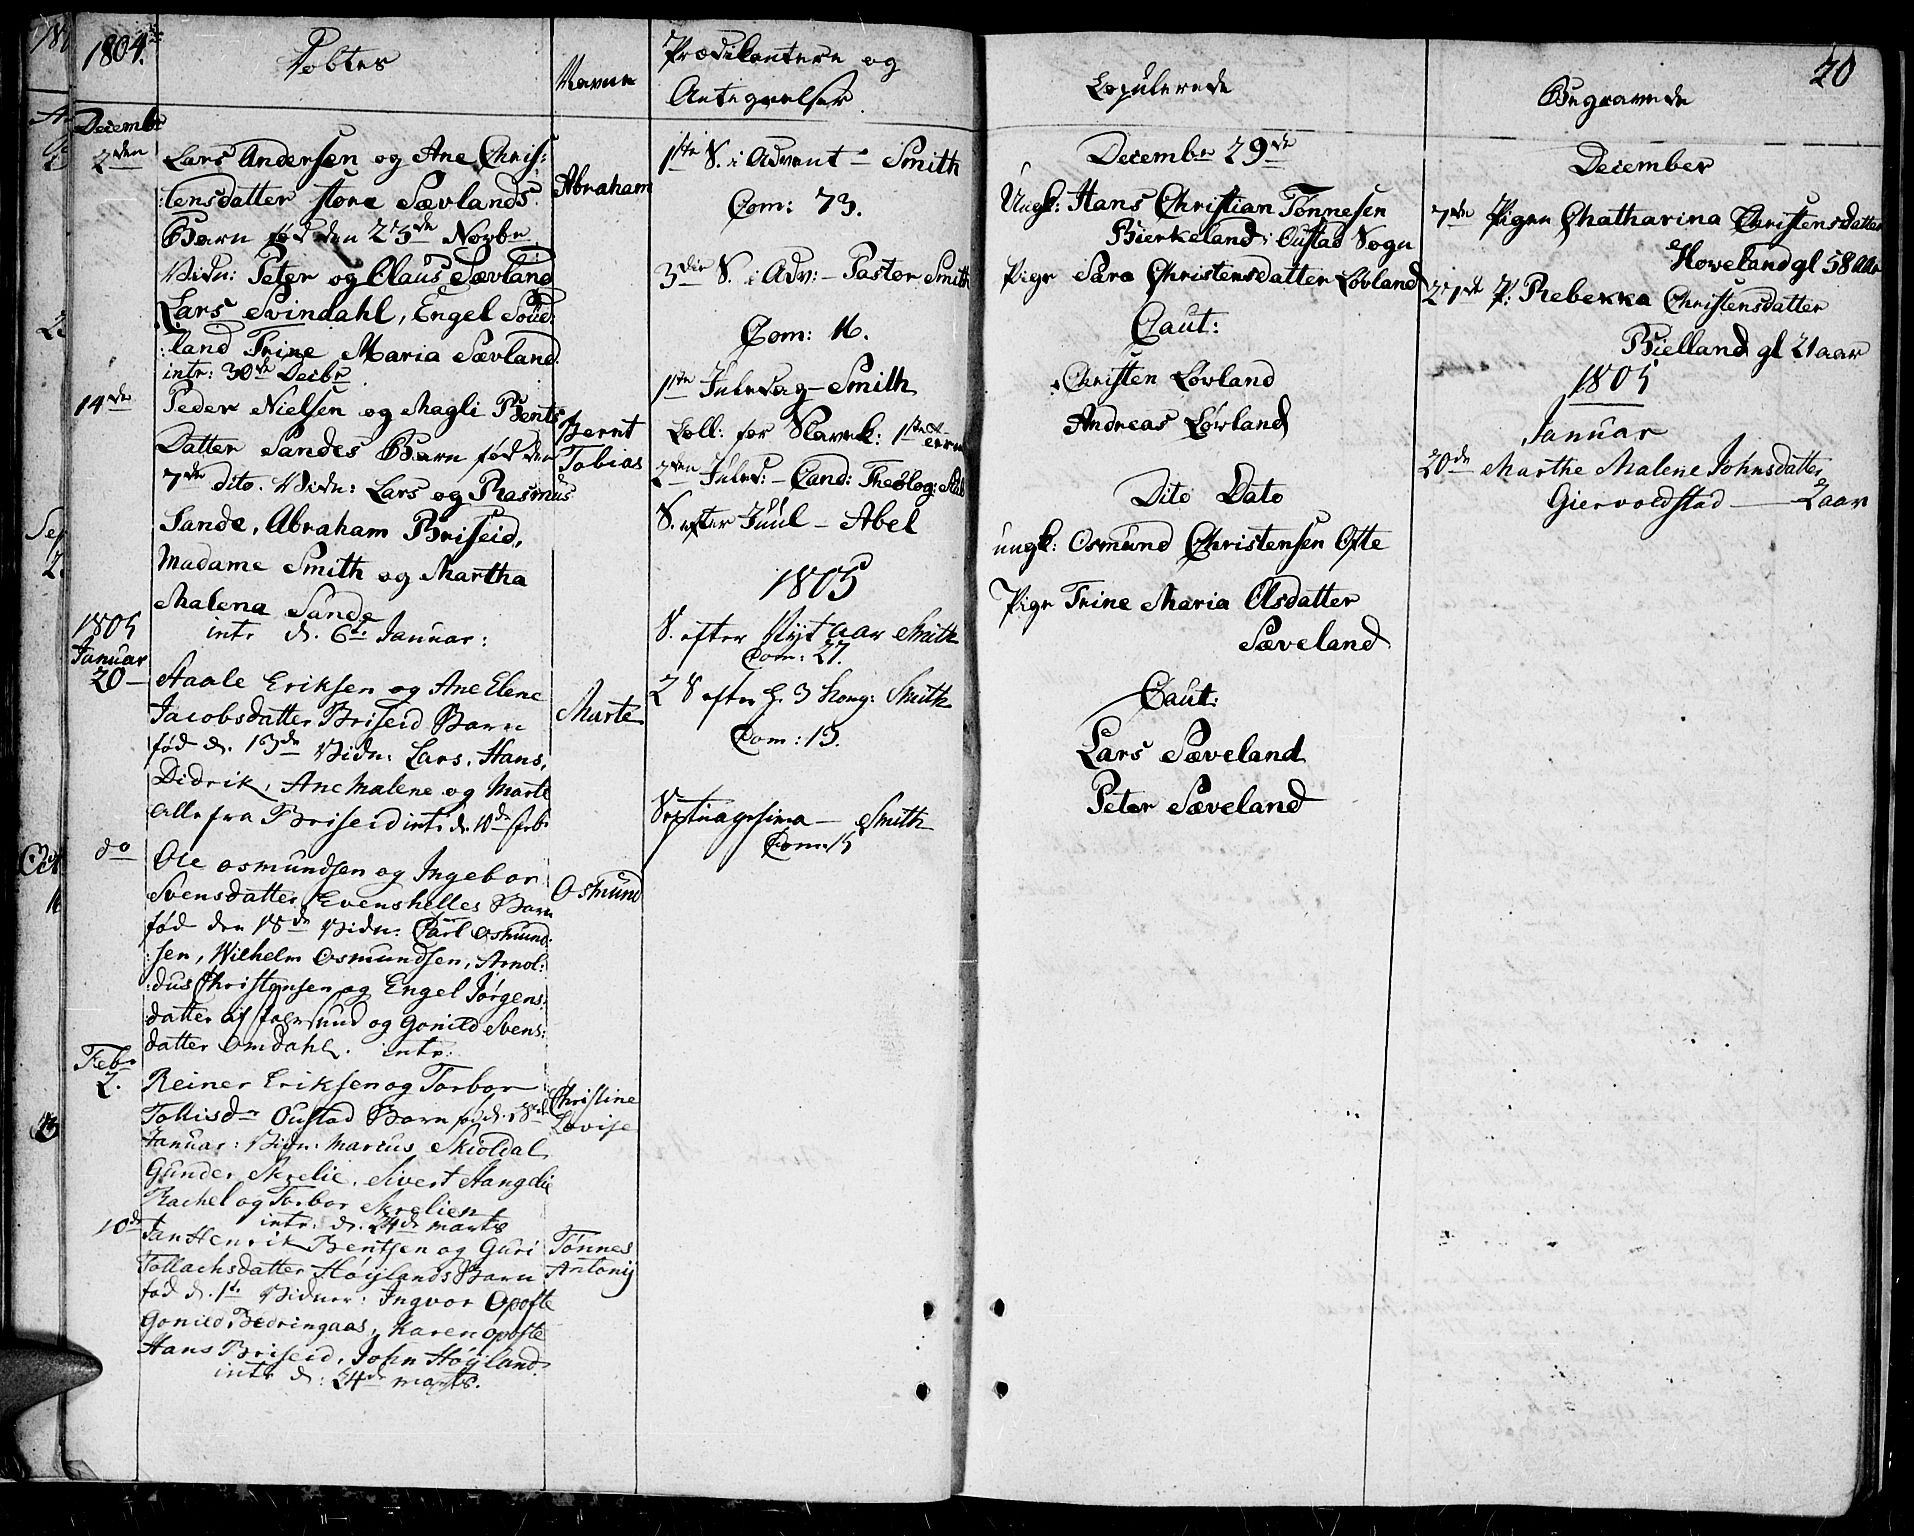 1804.
Döbte
Navne
Prædikantere og
Antegnelser
Copulerede
Begravede
20
Decembr
2den
Lars Andersen og Ane Chris:
:tensdatter store Sævlands
Barn fød den 25de Novbr
Vidn: Peter og Claus Sævland
Lars Svindahl, Engel Soüd:
:land Trine Maria Sævland.
intr: 30te Decbr
Abraham
14de
Peder Nielsen og Magli Bents
Datter Sandes Barn fød den
7de dito. Vidn: Lars og Rasmus
Sande, Abraham Briseid,
Madame Smith og Martha
Malena Sande
intr d. 6te Januar:
Bernt
Tobias
1805
Januar
20
Staale Eriksen og Ane Elene
Jacobsdatter Briseid Barn
fød d. 13de Vidn: Lars, Hans,
Didrik, Ane Malene og Marte
alle fra Briseid intr. d. 10de febr
Marte
do
Ole Osmundsen og Ingebor
Svensdatter Evenshelles Barn
fød den 18de Vidn: Carl Osmund:
:sen, Wilhelm Osmundsen, Arnol:
:dus Christensen og Engel Jørgens:
datter af farsund og Gonild Svens:
datter Omdahl. intr:
Osmund
Febr
2.
Reiner Eriksen og Torbor
Tollisdr Oustad Barn fød d. 28de
Januar: Vidn: Marcus Skioldal,
Gunder Skrelie, Sivert Hangelie
Rachel og Torbor Skrelien
intr: d. 24de marts
Christine
Lovise
10de
Jan Henrik Bentsen og Guri
Tollachsdatter Høylands Barn
fød d. 1te Vidner: Ingvor Opofte
Gonild Bedringaas, Karen opofte
Hans Briseid, John Høyland.
intr d: 24de marts.
Tønnes
Antonij
1ste S. i Advent - Smith
Com: 73.
3die S. i Adv: - Pastor Smith
Com: 16.
1ste Juledag - Smith
Coll: for Slavek: 1ste
2den Juled: - Cand: Theolog:
S. efter Juul - Abel
1805
S. efter Nyt aar Smith
Com: 27.
2 S efter h. 3 kong: Smith
Com: 13.
Septuagesima - Smith
Com: 15
December 29de
Ungk: Hans Christian Tønnesen
Bierkeland i Oustad Sogn
Pige Sara Christensdatter Løvland
Caut:
Christen Lovland
Andreas Løvland
Dito Dato
ungk: Osmund Christensen Ofte
Pige Trine Maria Olsdatter
Sæveland
Caut:
Lars Sæveland
Peter Sæveland
December
7de Pigen Chatharina Christensdatter
Hoveland gl 58 Aar
27de P: Rebekka Christensdatter
Bielland gl 21 aar
1805
Januar
20de Marthe Malene Johnsdatter
Giervoldstad - 2 aar